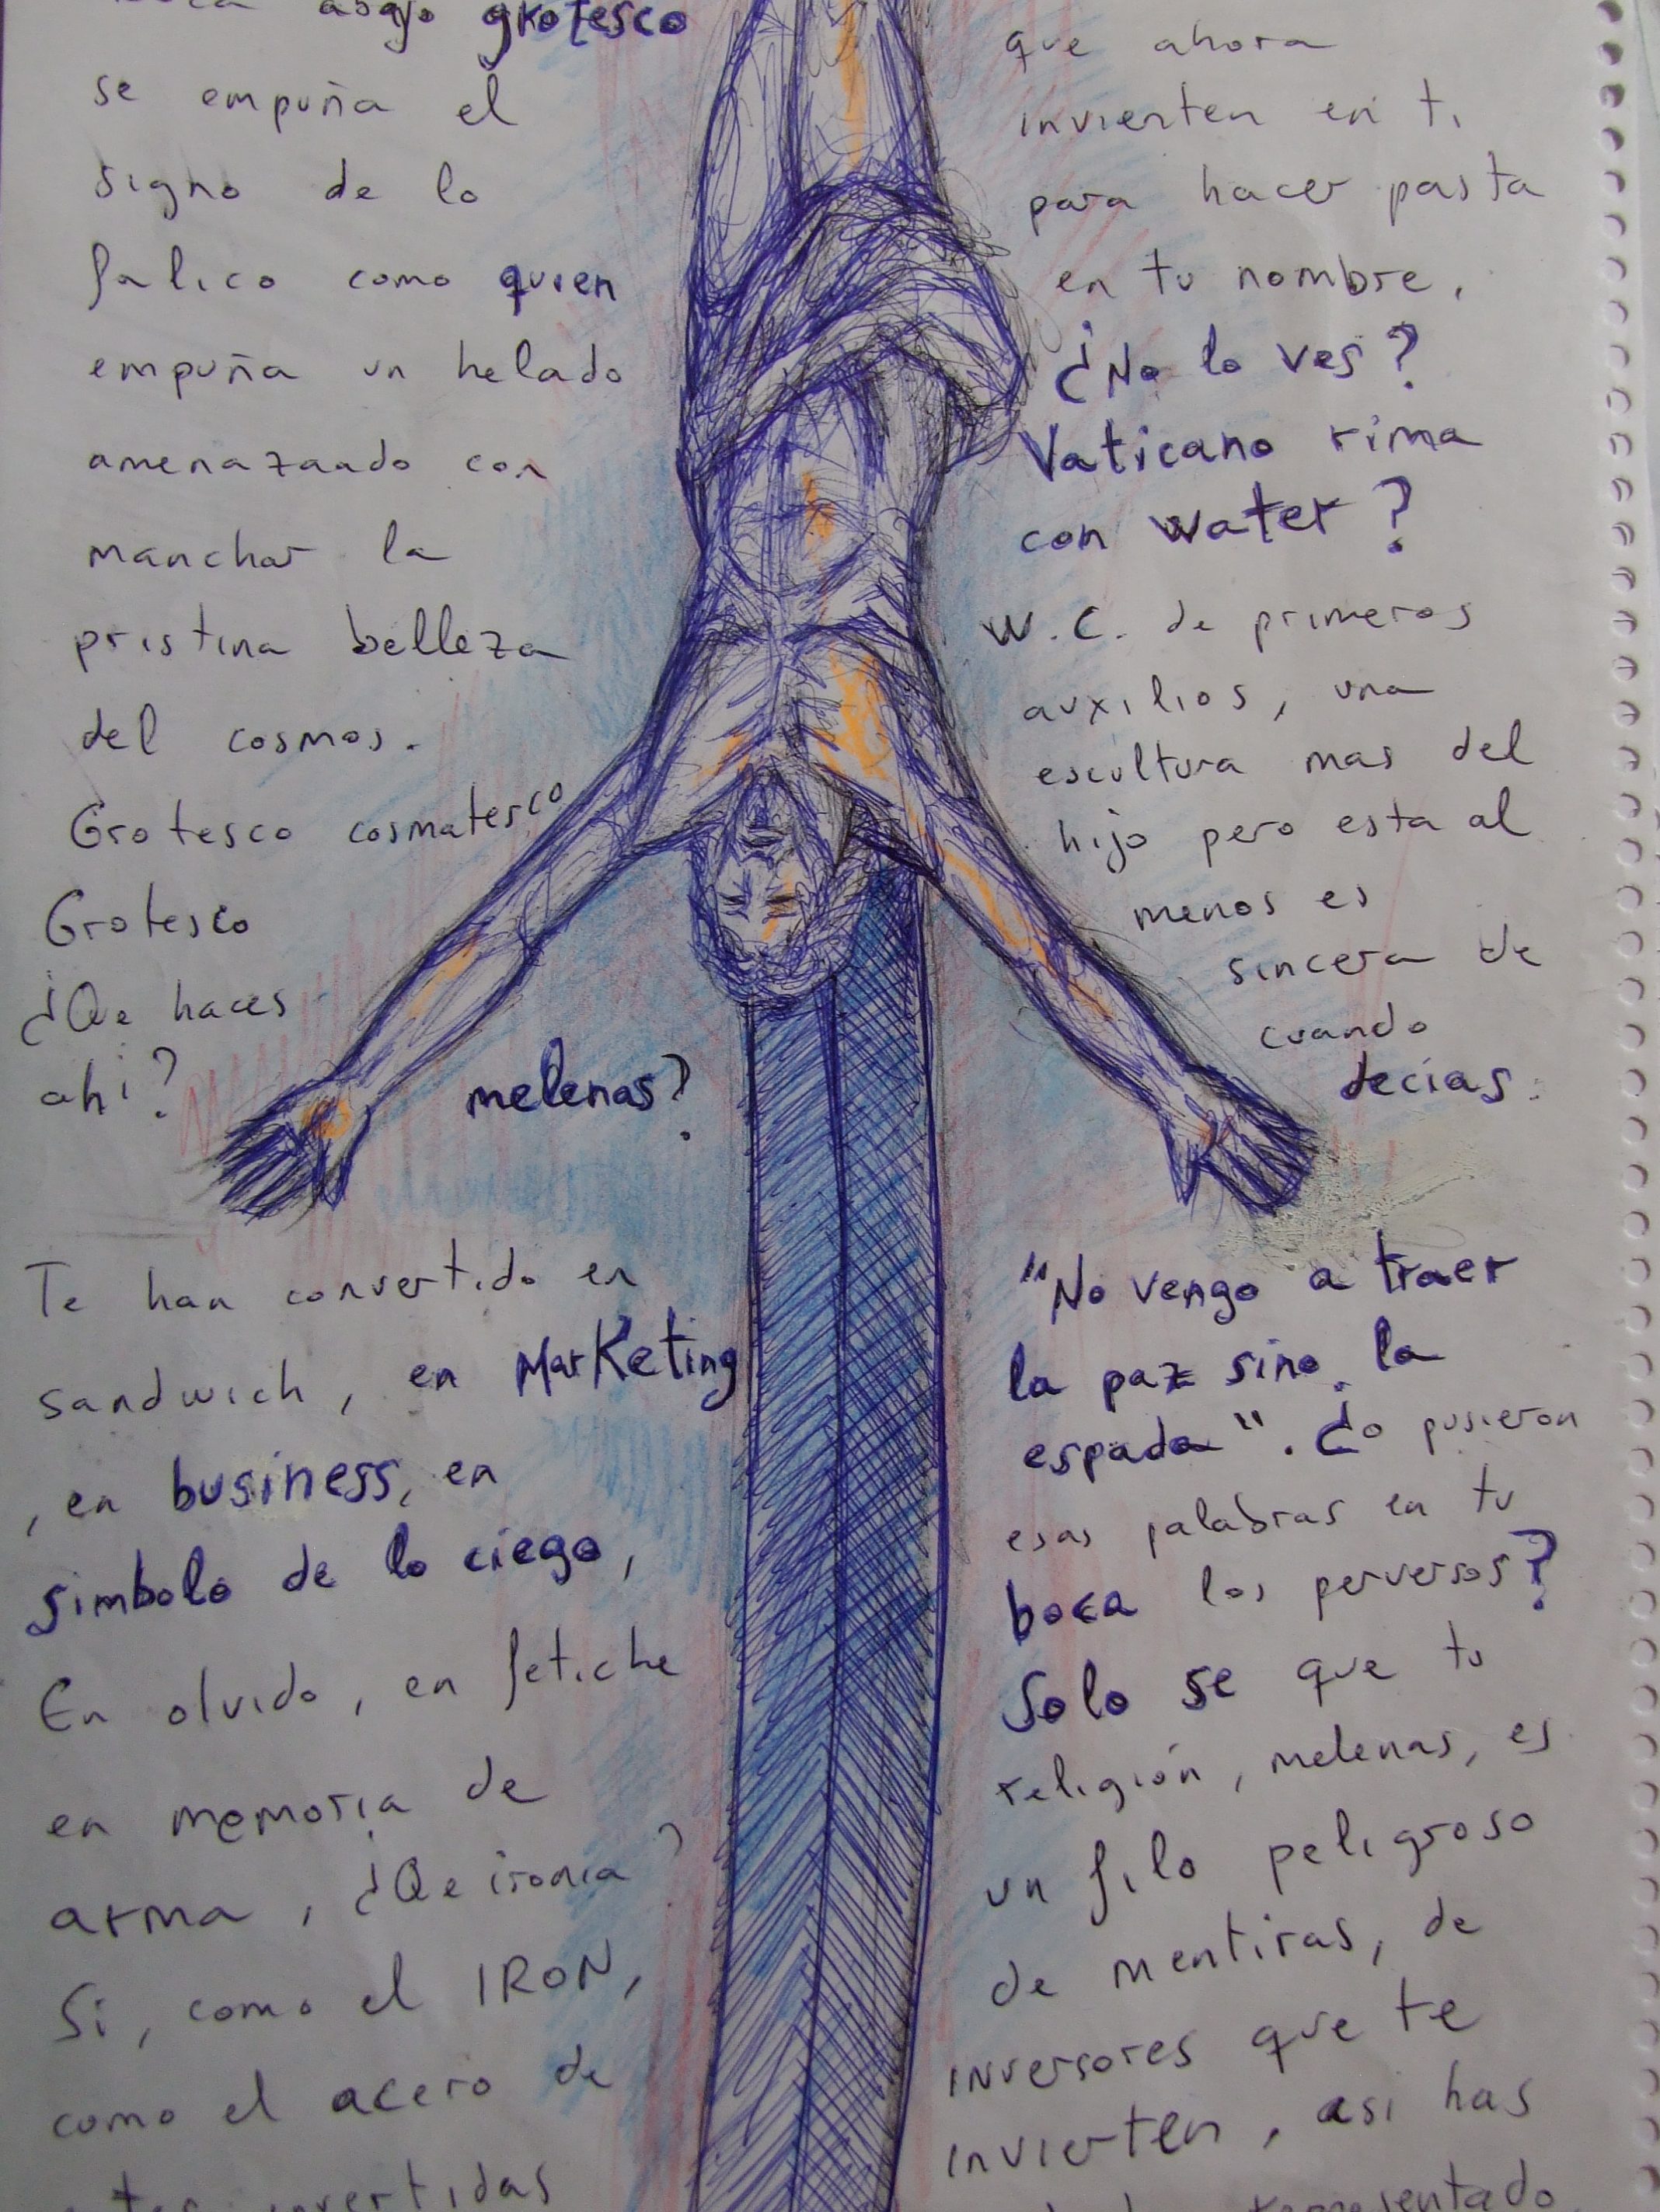 boca abajo grotesco
se empuña el
signo de lo
falico como quien
empuña un helado
amenazando con
manchar la
pristina belleza
del cosmos.
Grotesco cosmatesco
Grotesco
¿Qe haces
ahi? melenas?
Te han convertido en
sandwich, en Marketing
, en business, en
simbolo de lo ciego,
En olvido, en fetiche
en memoria de
arma, ¿Qe ironia?
Si, como el IRON,
como el acero de
invertidas
que ahora
invierten en ti
para hacer pasta
en tu nombre,
¿No lo ves?
Vaticano rima
con water?
W.C. de primeros
auxilios, una
escultura mas del
hijo pero esta al
menos es
sincera de
cuando
decías:
"No vengo a traer
la paz sino la
espada". ¿o pusieron
esas palabras en tu
boca los perversos?
Solo se que tu
religión, melenas, es
un filo peligroso
de mentiras, de
inversores que te
invierten, asi has
representado